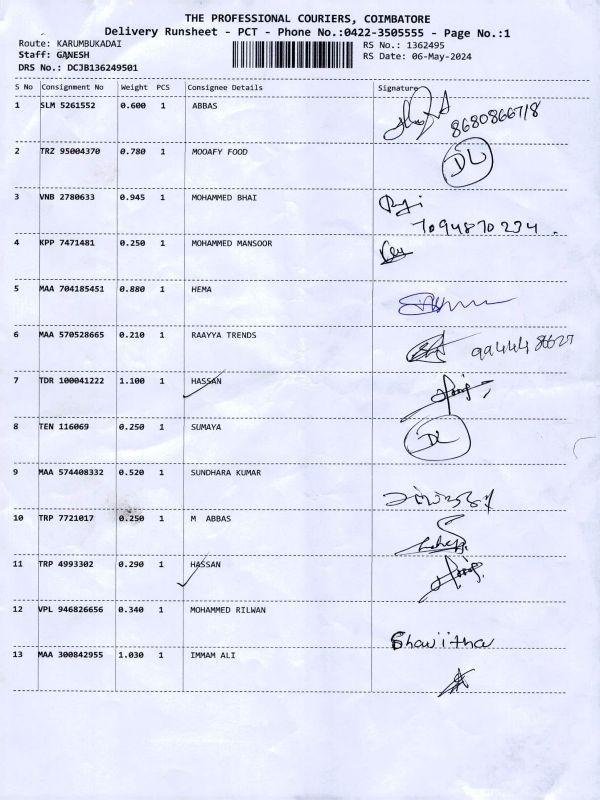 THE PROFESSIONAL COURIERS, COIMBATORE
Delivery Runsheet - PCT - Phone No.:0422-3505555 - Page No.:1
Route: KARUMBUKADAI RS No.: 1362495
Staff: GANESH RS Date: 06-May-2024
DRS No.: DCJB136249501
S No Consignment No Weight PCS Consignee Details Signature
1 SLM 5261552 0.600 1 ABBAS
8680866718
2 TRZ 95004370 0.780 1 MOOAFY FOOD DL
3 VNB 2780633 0.945 1 MOHAMMED BHAI
7094870234.
4 KPP 7471481 0.250 1 MOHAMMED MANSOOR
5 MAA 704185451 0.880 1 HEMA
6 MAA 570528665 0.210 1 RAAYYA TRENDS
7 TDR 100041222 1.100 1 HASSAN
8 TEN 116069 0.250 1 SUMAYA DL
9 MAA 574408332 0.520 1 SUNDHARA KUMAR
10 TRP 7721017 0.250 1 M ABBAS
11 TRP 4993302 0.290 1 HASSAN
12 VPL 946826656 0.340 1 MOHAMMED RILWAN
Shajitha
13 MAA 300842955 1.030 1 IMMAM ALI